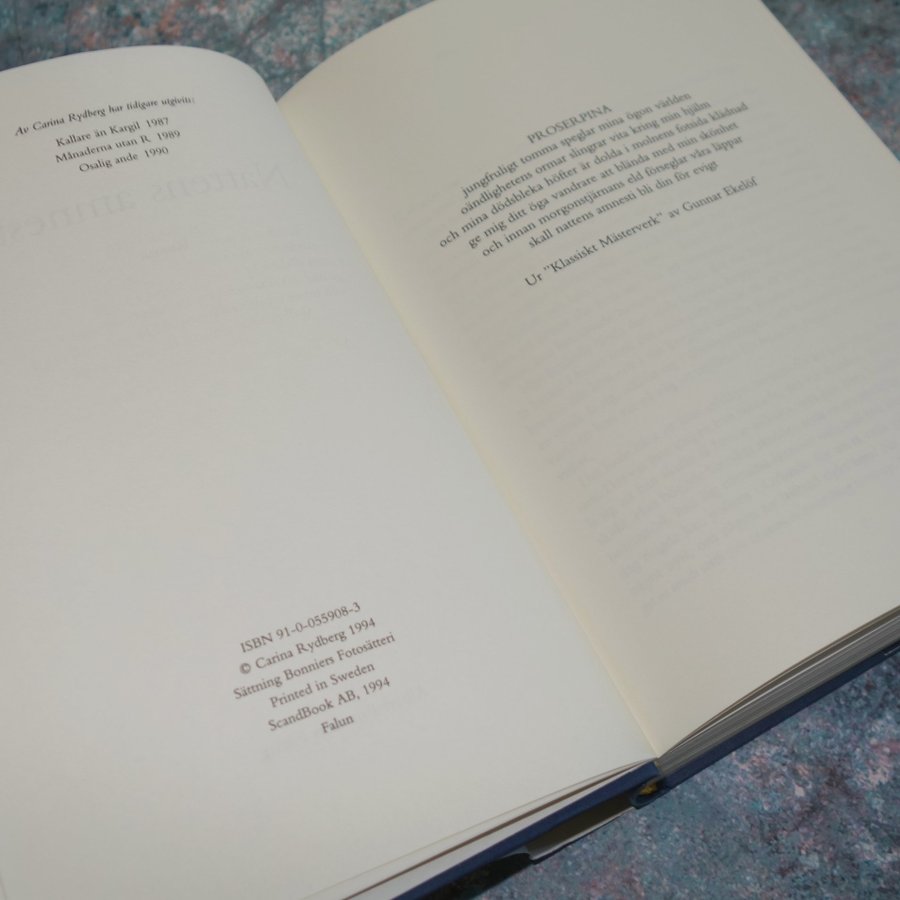 Av Carina Rydberg har tidigare utgivits:
Kallare än Kargil 1987
Månaderna utan R 1989
Osalig ande 1990
ISBN 91-0-055908-3
© Carina Rydberg 1994
Sättning Bonniers Fotosätteri
Printed in Sweden
ScandBook AB, 1994
Falun
PROSERPINA
jungfruligt tomma speglar mina ögon världen
oändlighetens ormar slingrar vita kring min hjälm
och mina dödsbleka höfter är dolda i molnens fotsida klädnad
ge mig ditt öga vandrare att blända med min skönhet
och innan morgonstjärnans eld förseglar våra läppar
skall nattens amnesti bli din för evigt
Ur "Klassiskt Mästerverk" av Gunnar Ekelöf